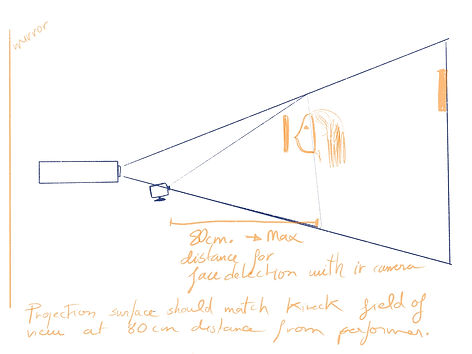 mirror
80cm. → Max
distance for
face detection with ir camera
Projection surface should match Kineck field of
view at 80cm distance from performer.